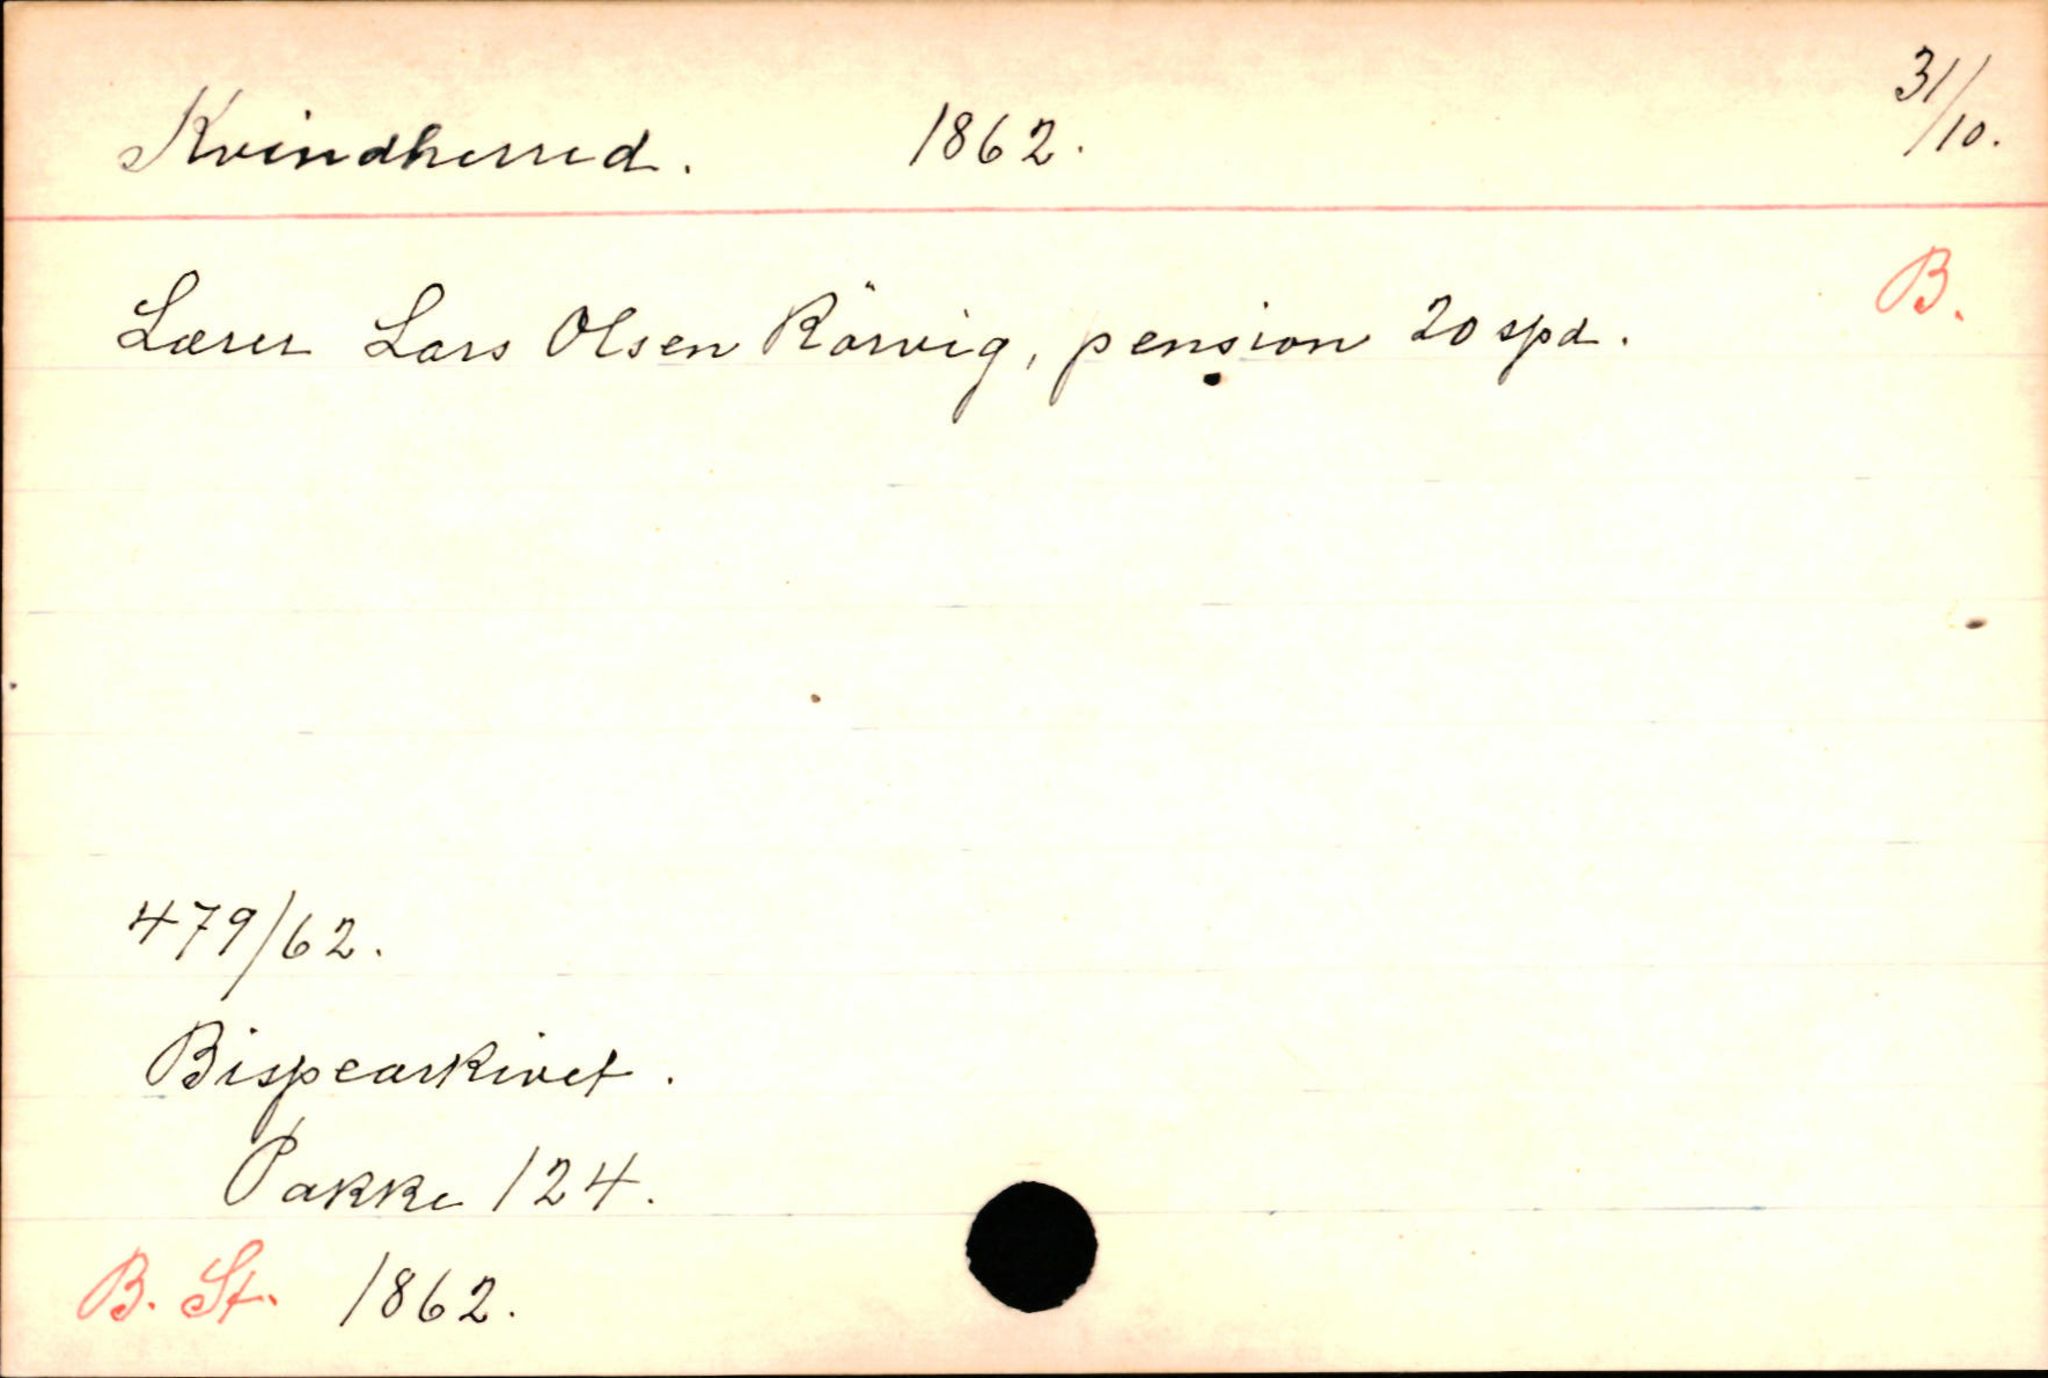 Kvindherred. 1862. 31/10.
B.
Lærer Lars Olsen Rörvig, pension 20 spd.
479/62.
Bispearkivet.
Pakke 124.
B. St. 1862.